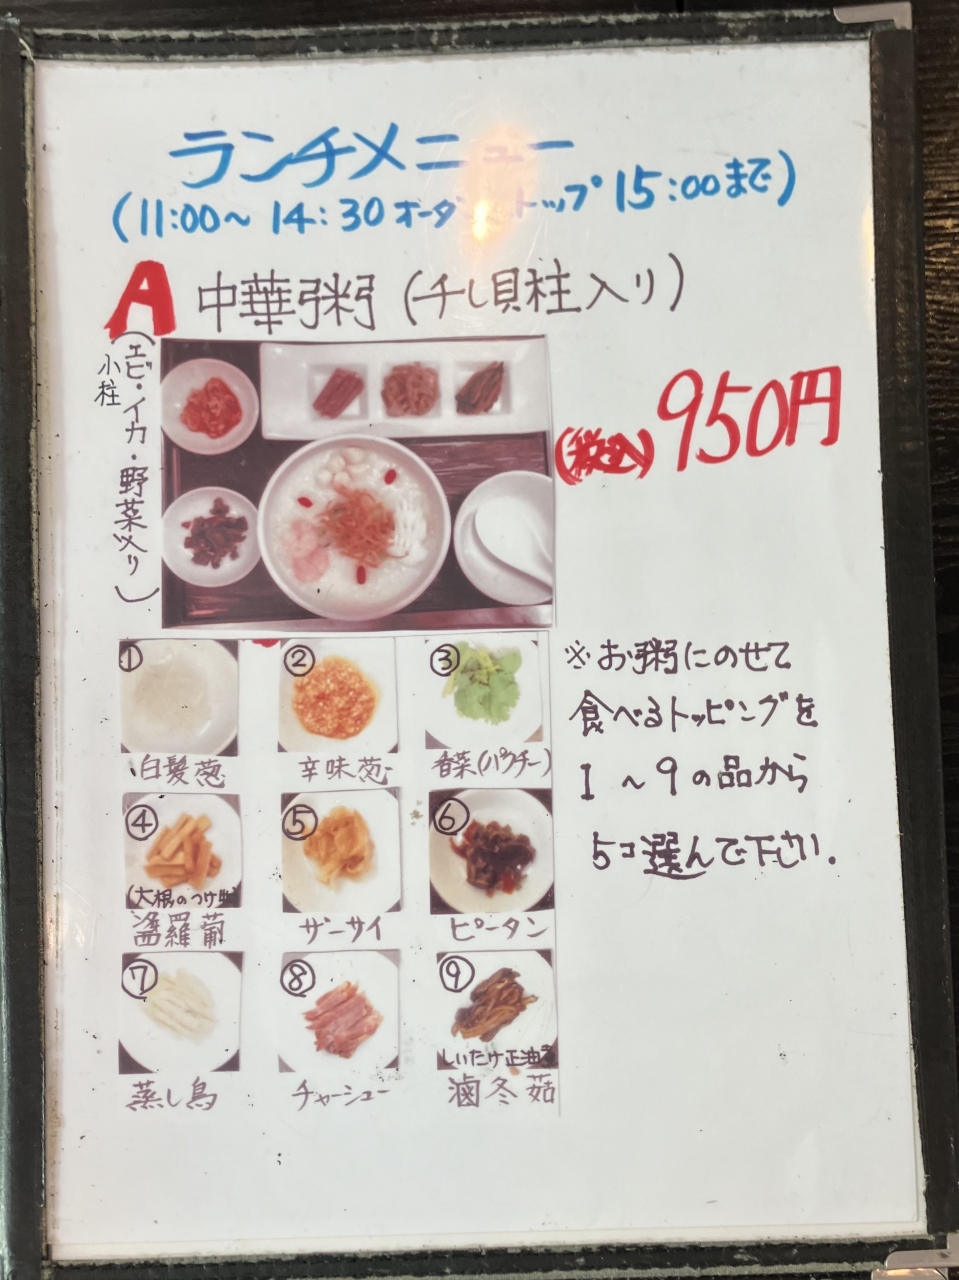 ランチメニュー
(11:00～14:30 オーダーストップ 15:00まで)
A 中華粥(干し貝柱入り)
(エビ・イカ・野菜入り)
小柱
(税込)950円
① ② ③
白髪葱 辛味葱 香菜(パクチー)
※お粥にのせて
食べるトッピングを
1～9の品から
5コ選んで下さい.
④ ⑤ ⑥
(大根のつけ物)
蘿葡 ザーサイ ピータン
⑦ ⑧ ⑨
しいたけ正油煮
蒸し鳥 チャーシュー 滷冬菇